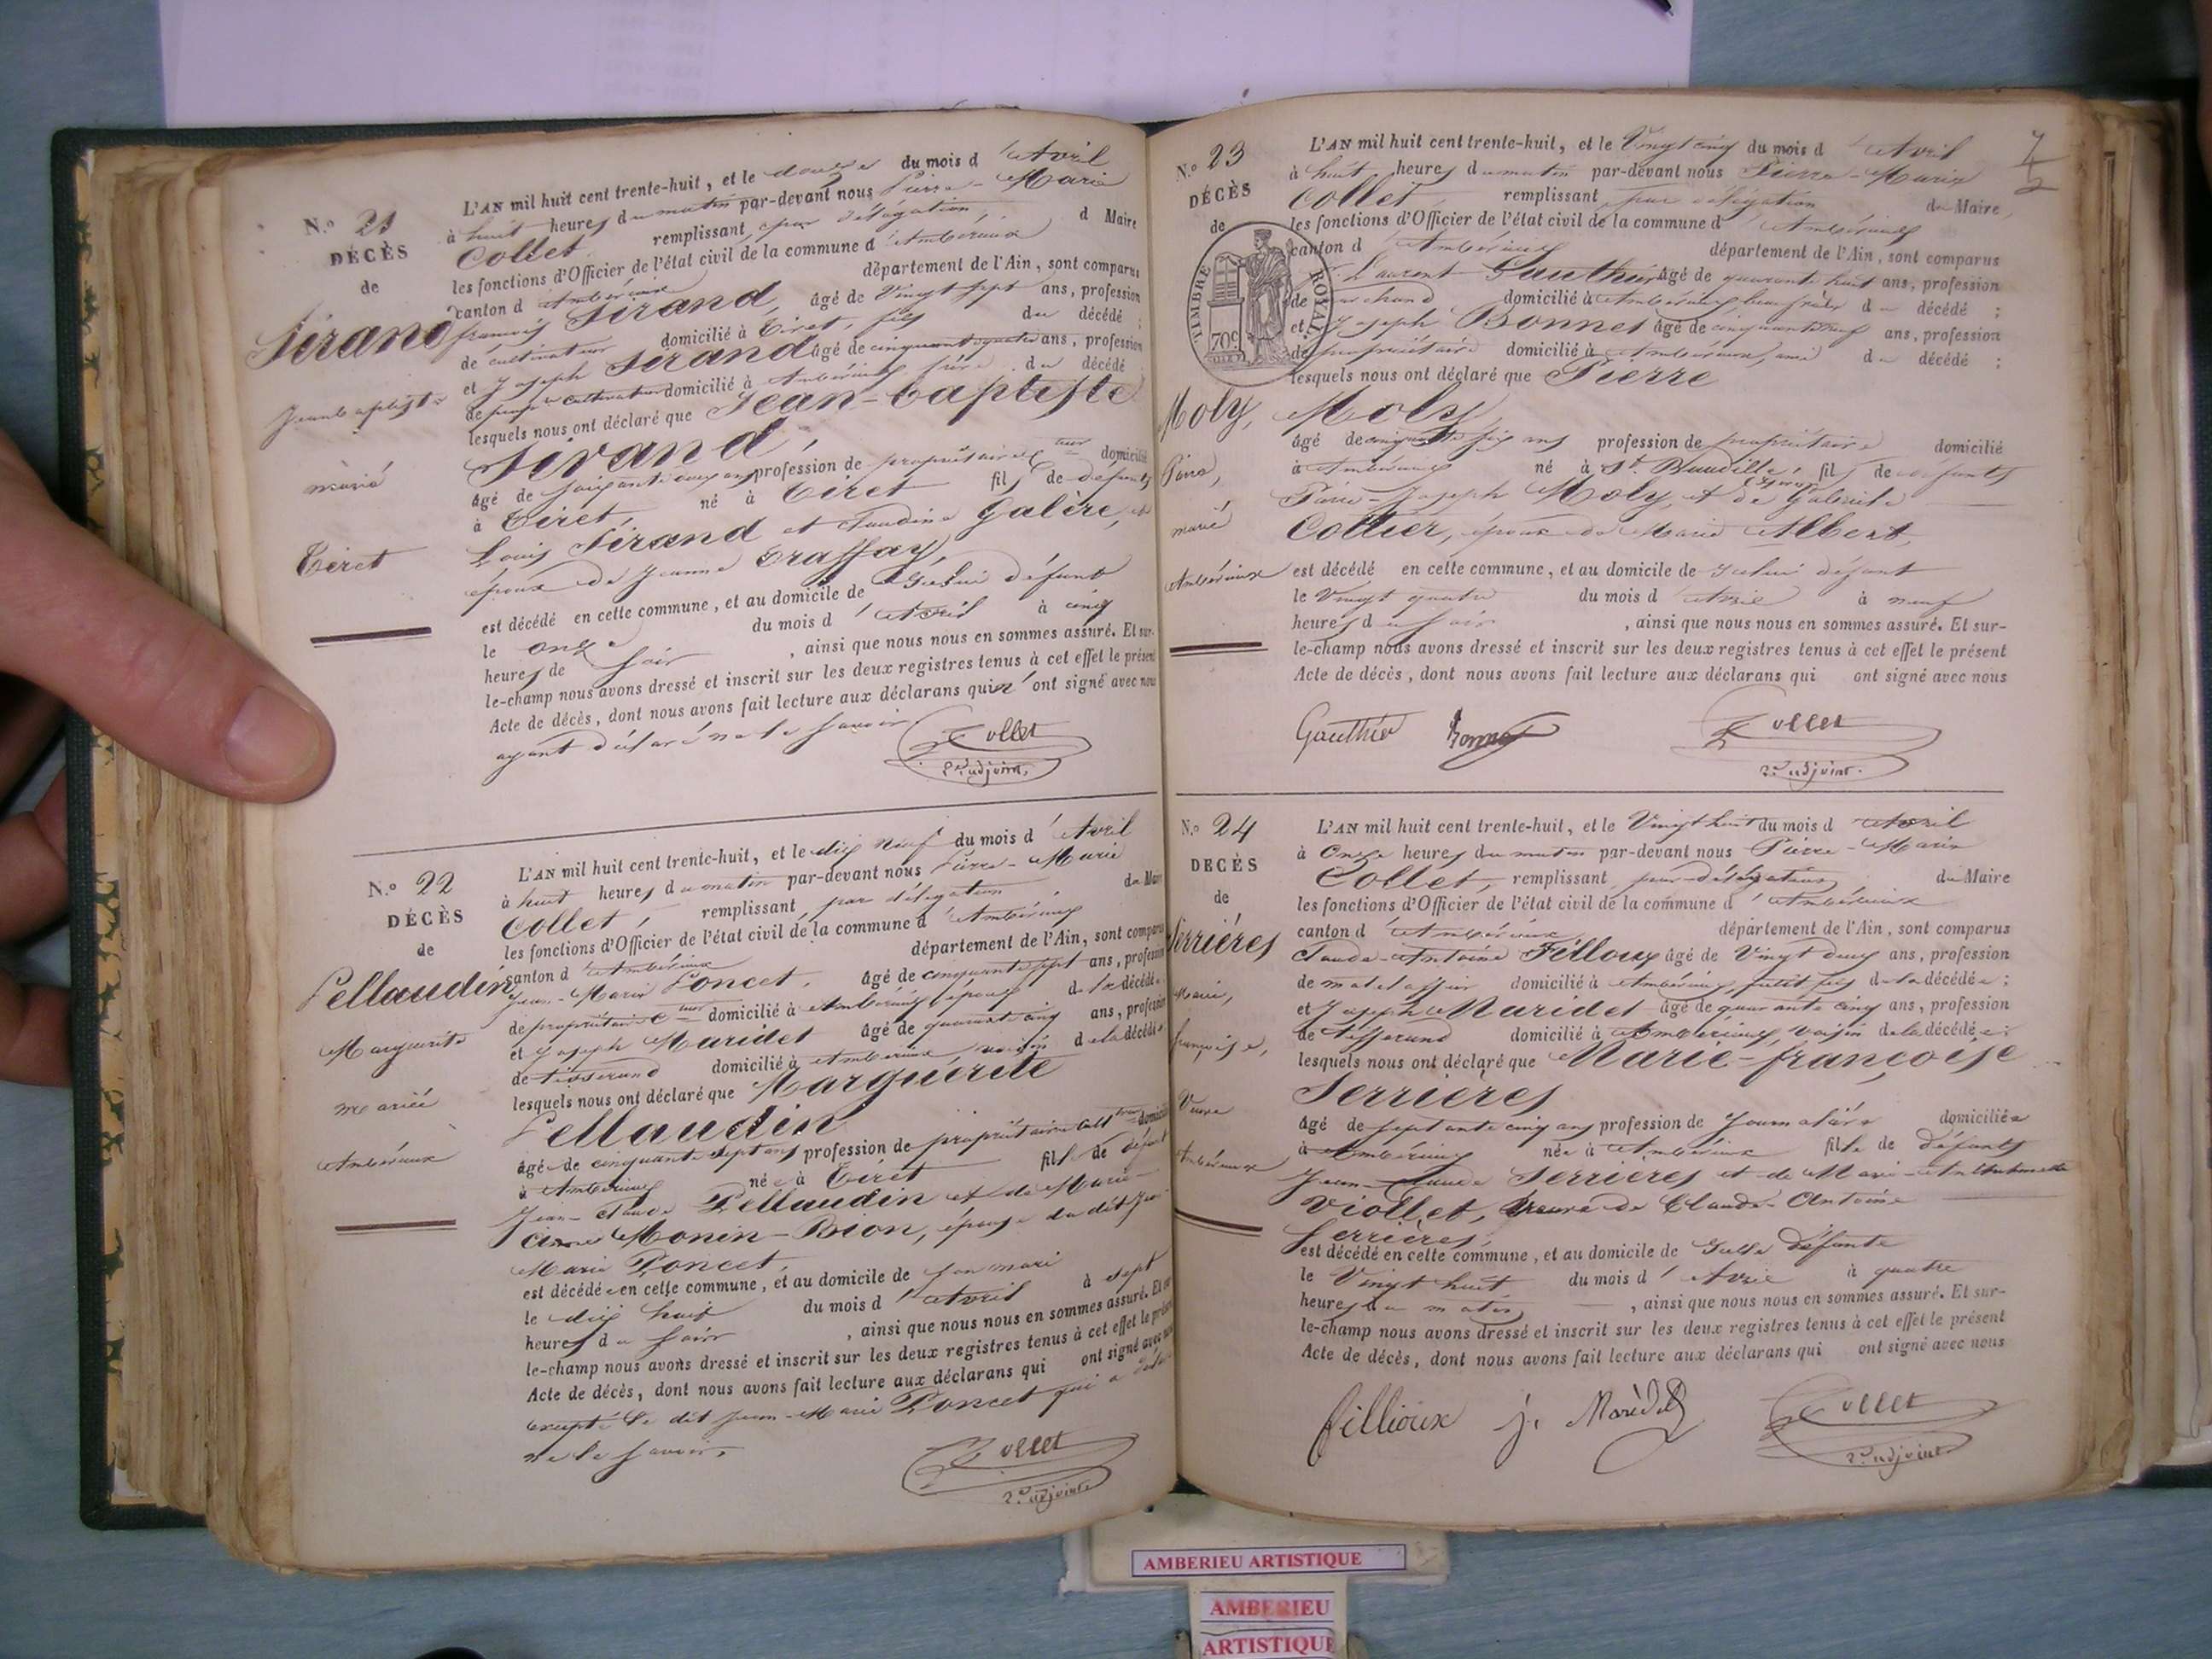 N.o 21
DÉCÈS
de
Sirand
Jean baptiste
marié
Tiret
L'AN mil huit cent trente-huit, et le douze du mois d'Avril
à huit heures du matin par-devant nous Pierre-Marie
Collet remplissant par délégation, d Maire
les fonctions d'Officier de l'état civil de la commune d'Ambérieux
canton d'Ambérieux département de l'Ain, sont comparus
françois Sirand, âgé de Vingt Sept ans, profession
de cultivateur domicilié à Tiret, fils du décédé ;
et Joseph Sirand âgé de cinquante quatre ans, profession
de cultivateur domicilié à Ambérieux frère du décédé
lesquels nous ont déclaré que Jean-baptiste
Sirand,
âgé de soixante ans profession de propriétaire c.teur domicilié
à Tiret, né à Tiret fils de défunts
Louis Sirand et Claudine Galère, et
époux de Jeanne Traffay,
est décédé en cette commune, et au domicile de Icelui défunt
le onze du mois d'Avril à cinq
heures de soir, ainsi que nous nous en sommes assuré. Et sur-
le-champ nous avons dressé et inscrit sur les deux registres tenus à cet effet le présent
Acte de décès, dont nous avons fait lecture aux déclarans qui n'ont signé avec nous
ayant déclaré ne le savoir
Collet
2.e adjoint.
N.o 22
DÉCÈS
de
Pellaudin
Marguerite
mariée
Ambérieux
L'AN mil huit cent trente-huit, et le dix neuf du mois d'Avril
à huit heures du matin par-devant nous Pierre-Marie
Collet, remplissant par délégation du Maire
les fonctions d'Officier de l'état civil de la commune d'Ambérieux
canton d'Ambérieux département de l'Ain, sont comparus
Jean-Marie Poncet, âgé de cinquante sept ans, profession
de propriétaire c.teur domicilié à Ambérieux, époux de la décédée
et Joseph Maridet âgé de quarante cinq ans, profession
de tisserand domicilié à Ambérieux voisin de la décédée
lesquels nous ont déclaré que Marguerite
Pellaudin
âgée de cinquante sept ans profession de propriétaire cult.trice domiciliée
à Ambérieux née à Tiret fille de défunt
Jean-claude Pellaudin et de Marie-
Monin-Bion, épouse du dit Jean-
Marie Poncet,
est décédée en cette commune, et au domicile de son mari
le dix huit du mois d'Avril à sept
heures du soir, ainsi que nous nous en sommes assuré. Et sur-
le-champ nous avons dressé et inscrit sur les deux registres tenus à cet effet le présent
Acte de décès, dont nous avons fait lecture aux déclarans qui ont signé avec nous
excepté le dit Jean-Marie Poncet qui a déclaré
ne le savoir,
Collet
2.e adjoint
N.o 23
DÉCÈS
de
TIMBRE ROYAL
70c
Moly,
Pierre,
marié
Ambérieux
L'AN mil huit cent trente-huit, et le Vingt cinq du mois d'Avril
à huit heures du matin par-devant nous Pierre-Marie
Collet, remplissant par délégation du Maire,
les fonctions d'Officier de l'état civil de la commune d'Ambérieux
canton d'Ambérieux département de l'Ain, sont comparus
Laurent Gauthier âgé de quarante huit ans, profession
de marchand domicilié à Ambérieux, beau frère du décédé ;
et Joseph Bonnet âgé de cinquante neuf ans, profession
de propriétaire domicilié à Ambérieux, ami du décédé ;
lesquels nous ont déclaré que Pierre
Moly,
âgé de cinquante six ans profession de propriétaire domicilié
à Ambérieux né à St. Baudille, fils de défunts
Pierre-Joseph Moly, et de Gabriele
Collier, époux de Marie Albert,
est décédé en cette commune, et au domicile de Icelui défunt
le Vingt quatre du mois d'Avril à neuf
heures du soir, ainsi que nous nous en sommes assuré. Et sur-
le-champ nous avons dressé et inscrit sur les deux registres tenus à cet effet le présent
Acte de décès, dont nous avons fait lecture aux déclarans qui ont signé avec nous
Gauthier Bonnet Collet
2.e adjoint.
N.o 24
DECÈS
de
Serrières
Marie,
françoise,
Veuve
Ambérieux
L'AN mil huit cent trente-huit, et le Vingt huit du mois d'Avril
à Onze heures du matin par-devant nous Pierre-Marie
Collet, remplissant par délégation du Maire
les fonctions d'Officier de l'état civil de la commune d'Ambérieux
canton d'Ambérieux département de l'Ain, sont comparus
Claude-Antoine Filloux âgé de Vingt deux ans, profession
de matelassier domicilié à Ambérieux, petit fils de la décédée ;
et Joseph Maridet âgé de quarante cinq ans, profession
de tisserand domicilié à Ambérieux, voisin de la décédée ;
lesquels nous ont déclaré que Marie-françoise
Serrières
âgé de septante cinq ans profession de Journalière domiciliée
à Ambérieux née à Ambérieux fille de défunts
Jean-Claude Serrières et de Marie-Anthoinette
Viollet, Veuve de Claude-Antoine
Serrières,
est décédé en cette commune, et au domicile de Icelle défunte
le Vingt huit du mois d'Avril à quatre
heures du matin, ainsi que nous nous en sommes assuré. Et sur-
le-champ nous avons dressé et inscrit sur les deux registres tenus à cet effet le présent
Acte de décès, dont nous avons fait lecture aux déclarans qui ont signé avec nous
fillioux j. Maridet Collet
2.e adjoint
AMBERIEU ARTISTIQUE
AMBERIEU
ARTISTIQUE